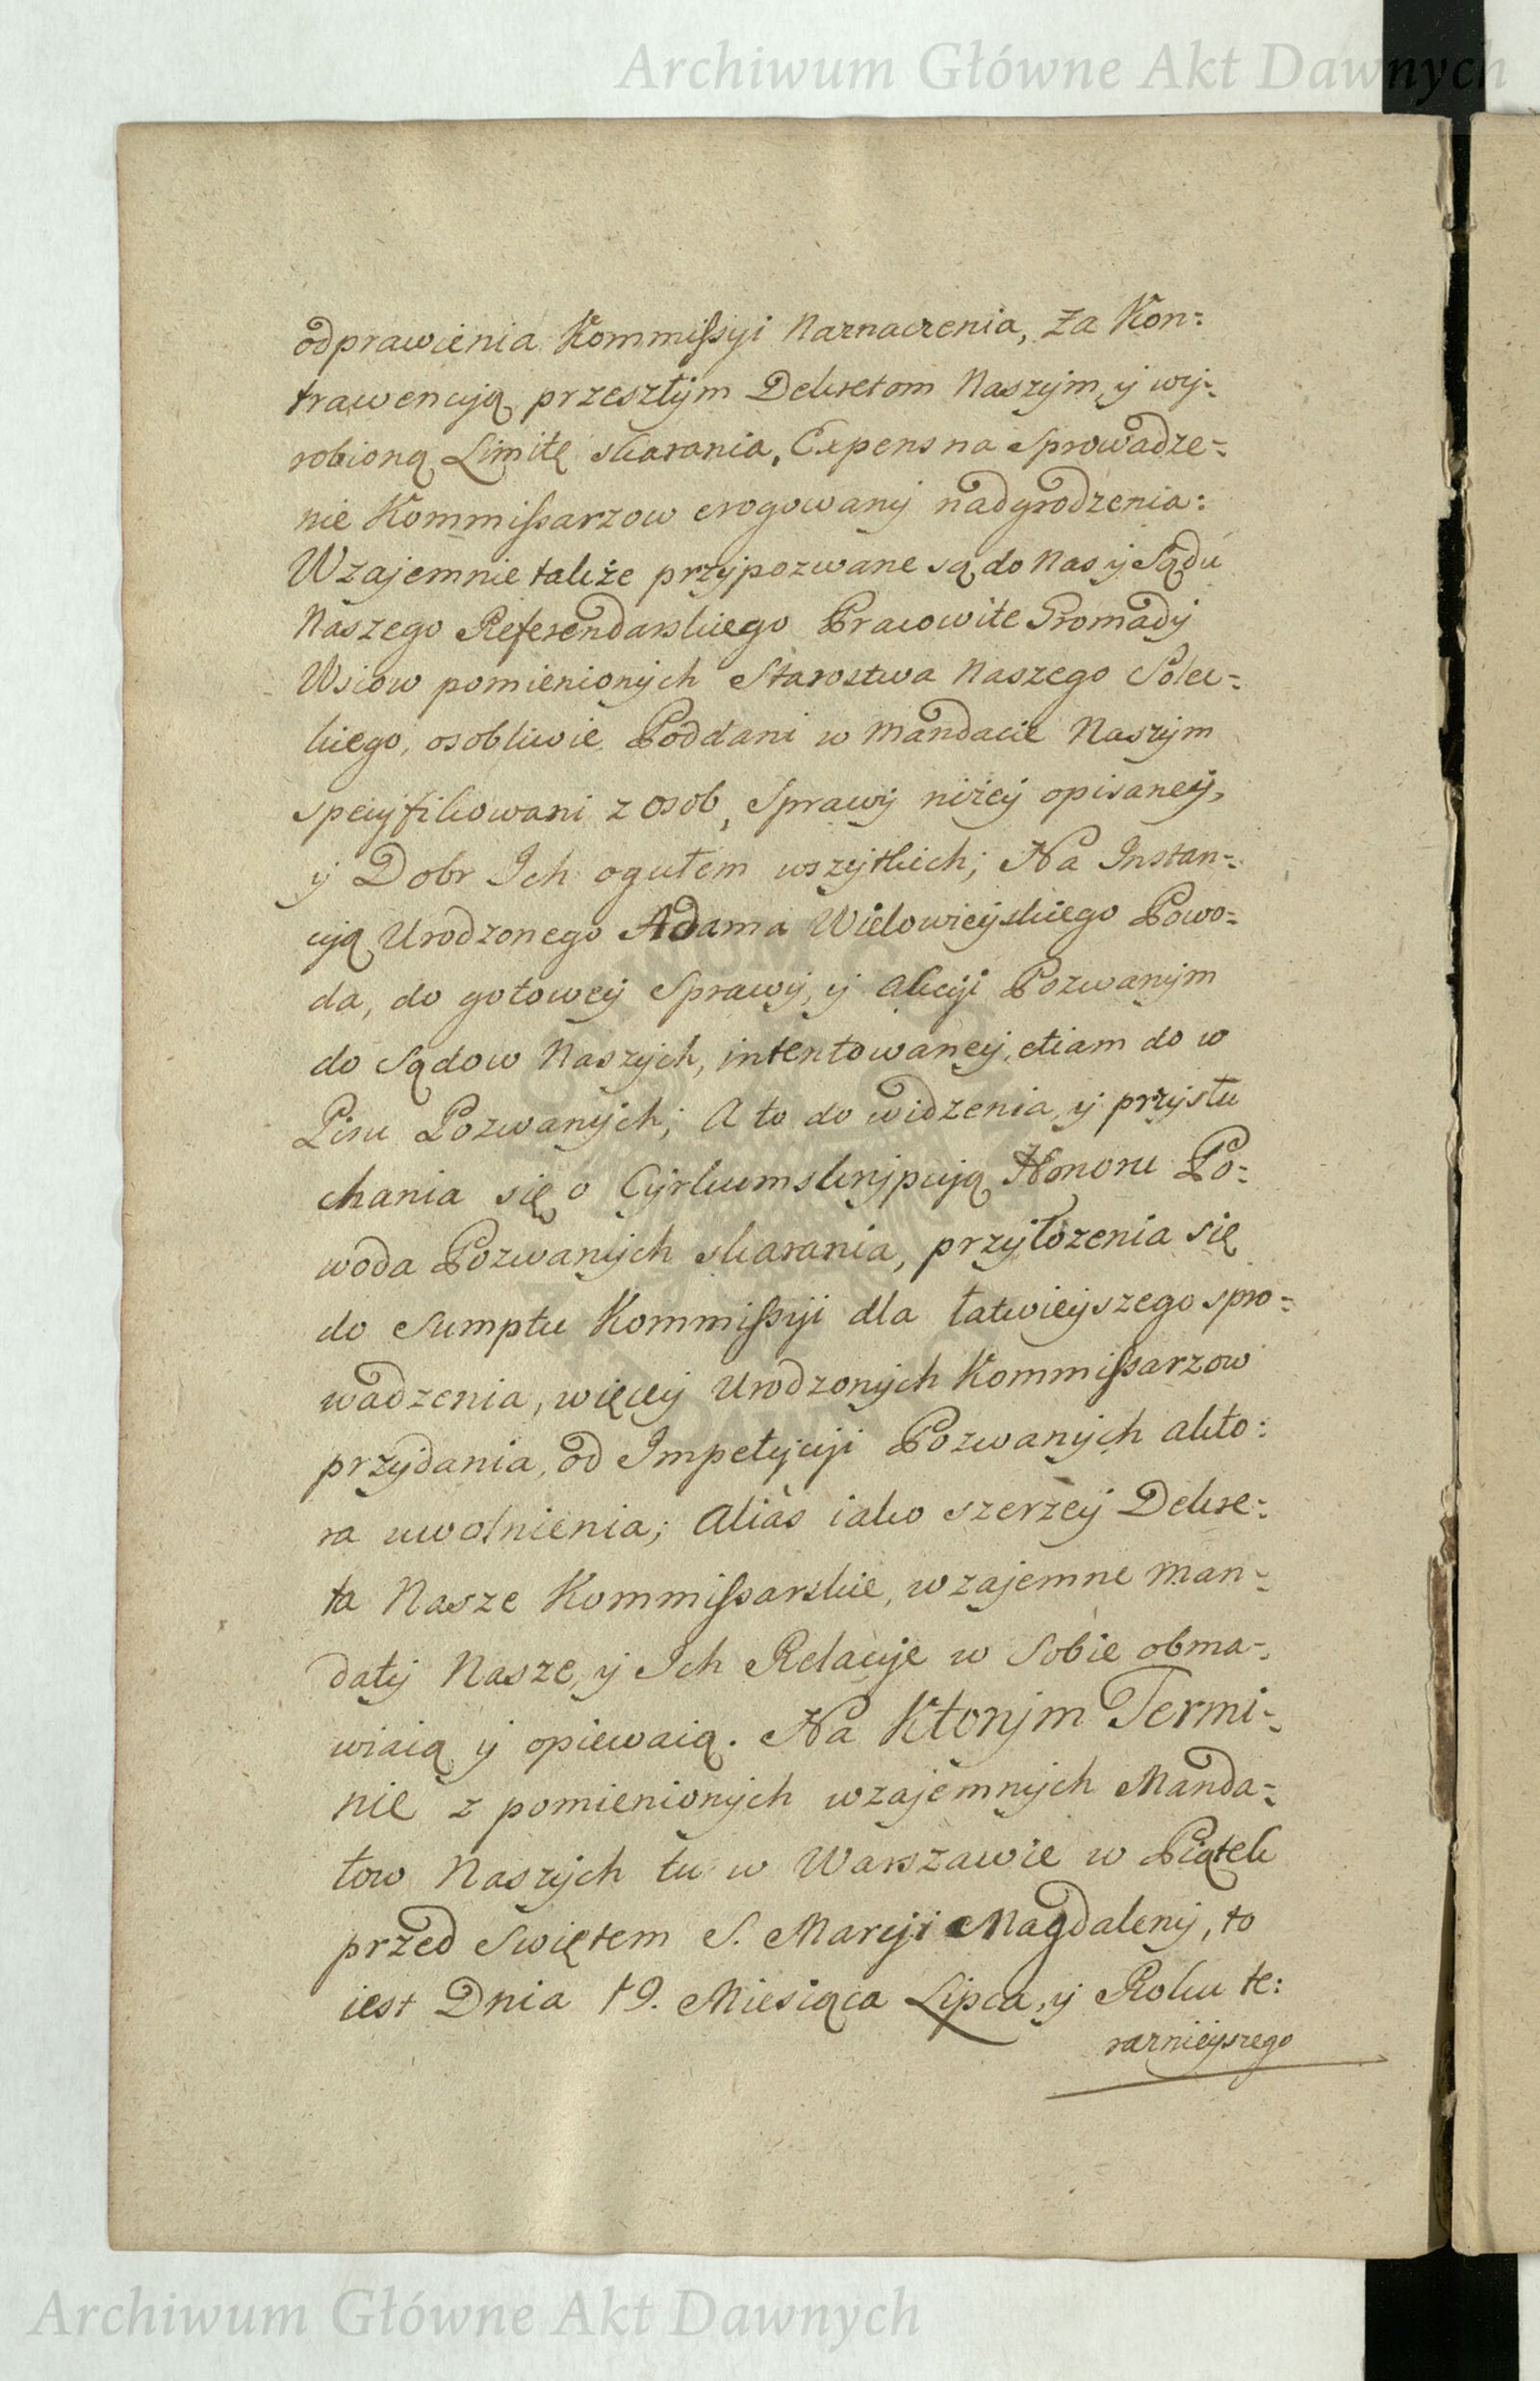 Archiwum Główne Akt Dawnych
odprawienia Kommissyi Naznaczenia, za Kon=
trawencyą przeszłym Dekretom Naszym, y wy=
robioną Limitę skarania, Expens na Sprowadze=
nie Kommissarzow erogowany nadgrodzenia:
Wzajemnie także przypozwane są do Nas y Sądu
Naszego Referendarskiego Pracowite Gromady
Wsiow pomienionych Starostwa Naszego Solec=
kiego, osobliwie Poddani w Mandacie Naszym
specyfikowani z osob, Sprawy niżey opisaney,
y Dobr Ich ogułem wszytkich; Na Instan=
cyą Urodzonego Adama Wielowieyskiego Powo=
da, do gotowey Sprawy, y Akcyi Pozwanym
do Sądow Naszych, intentowaney, etiam do w
Pisu Pozwanych; A to do widzenia, y przysłu
chania się o Cyrkumskrypcyą Honoru Po=
woda Pozwanych skarania, przyłozenia się
do Sumptu Kommissyi dla łatwieyszego spro=
wadzenia, więcey Urodzonych Kommissarzow
przydania, od Impetycyi Pozwanych akto:
ra uwolnienia; Alias iako szerzey Dekre=
ta Nasze Kommissarskie, wzajemne Man=
daty Nasze, y Ich Relacye w Sobie obma=
wiaią y opiewaią. Na Ktorym Termi=
nie z pomienionych wzajemnych Manda=
tow Naszych tu w Warszawie w Piątek
przed Swiętem S. Maryi Magdaleny, to
iest Dnia 19. Miesiąca Lipca, y Roku te:
raznieyszego
Archiwum Główne Akt Dawnych